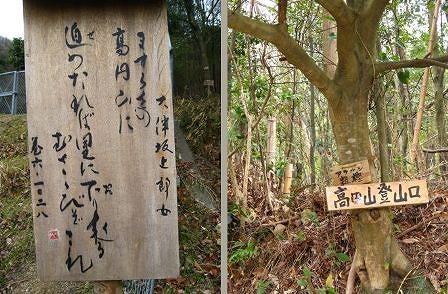 大伴坂上郎女
ますらをの
高円山に
迫めたれば里に下り来る
せ
お
むささびぞこれ
巻六 一〇二八
高円山登山口